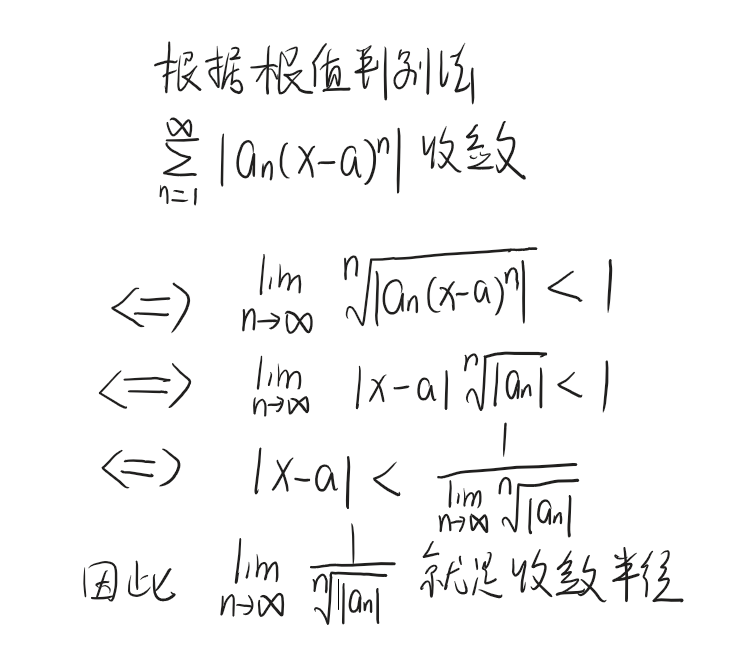 根据根值判别法
∞∑n=1 |aₙ(x-a)ⁿ| 收敛
<=> lim n→∞ ⁿ√|aₙ(x-a)ⁿ| < 1
<=> lim n→∞ |x-a| ⁿ√|aₙ| < 1
<=> |x-a| < 1/(lim n→∞ ⁿ√|aₙ|)
因此 lim n→∞ 1/ⁿ√|aₙ| 就是收敛半径